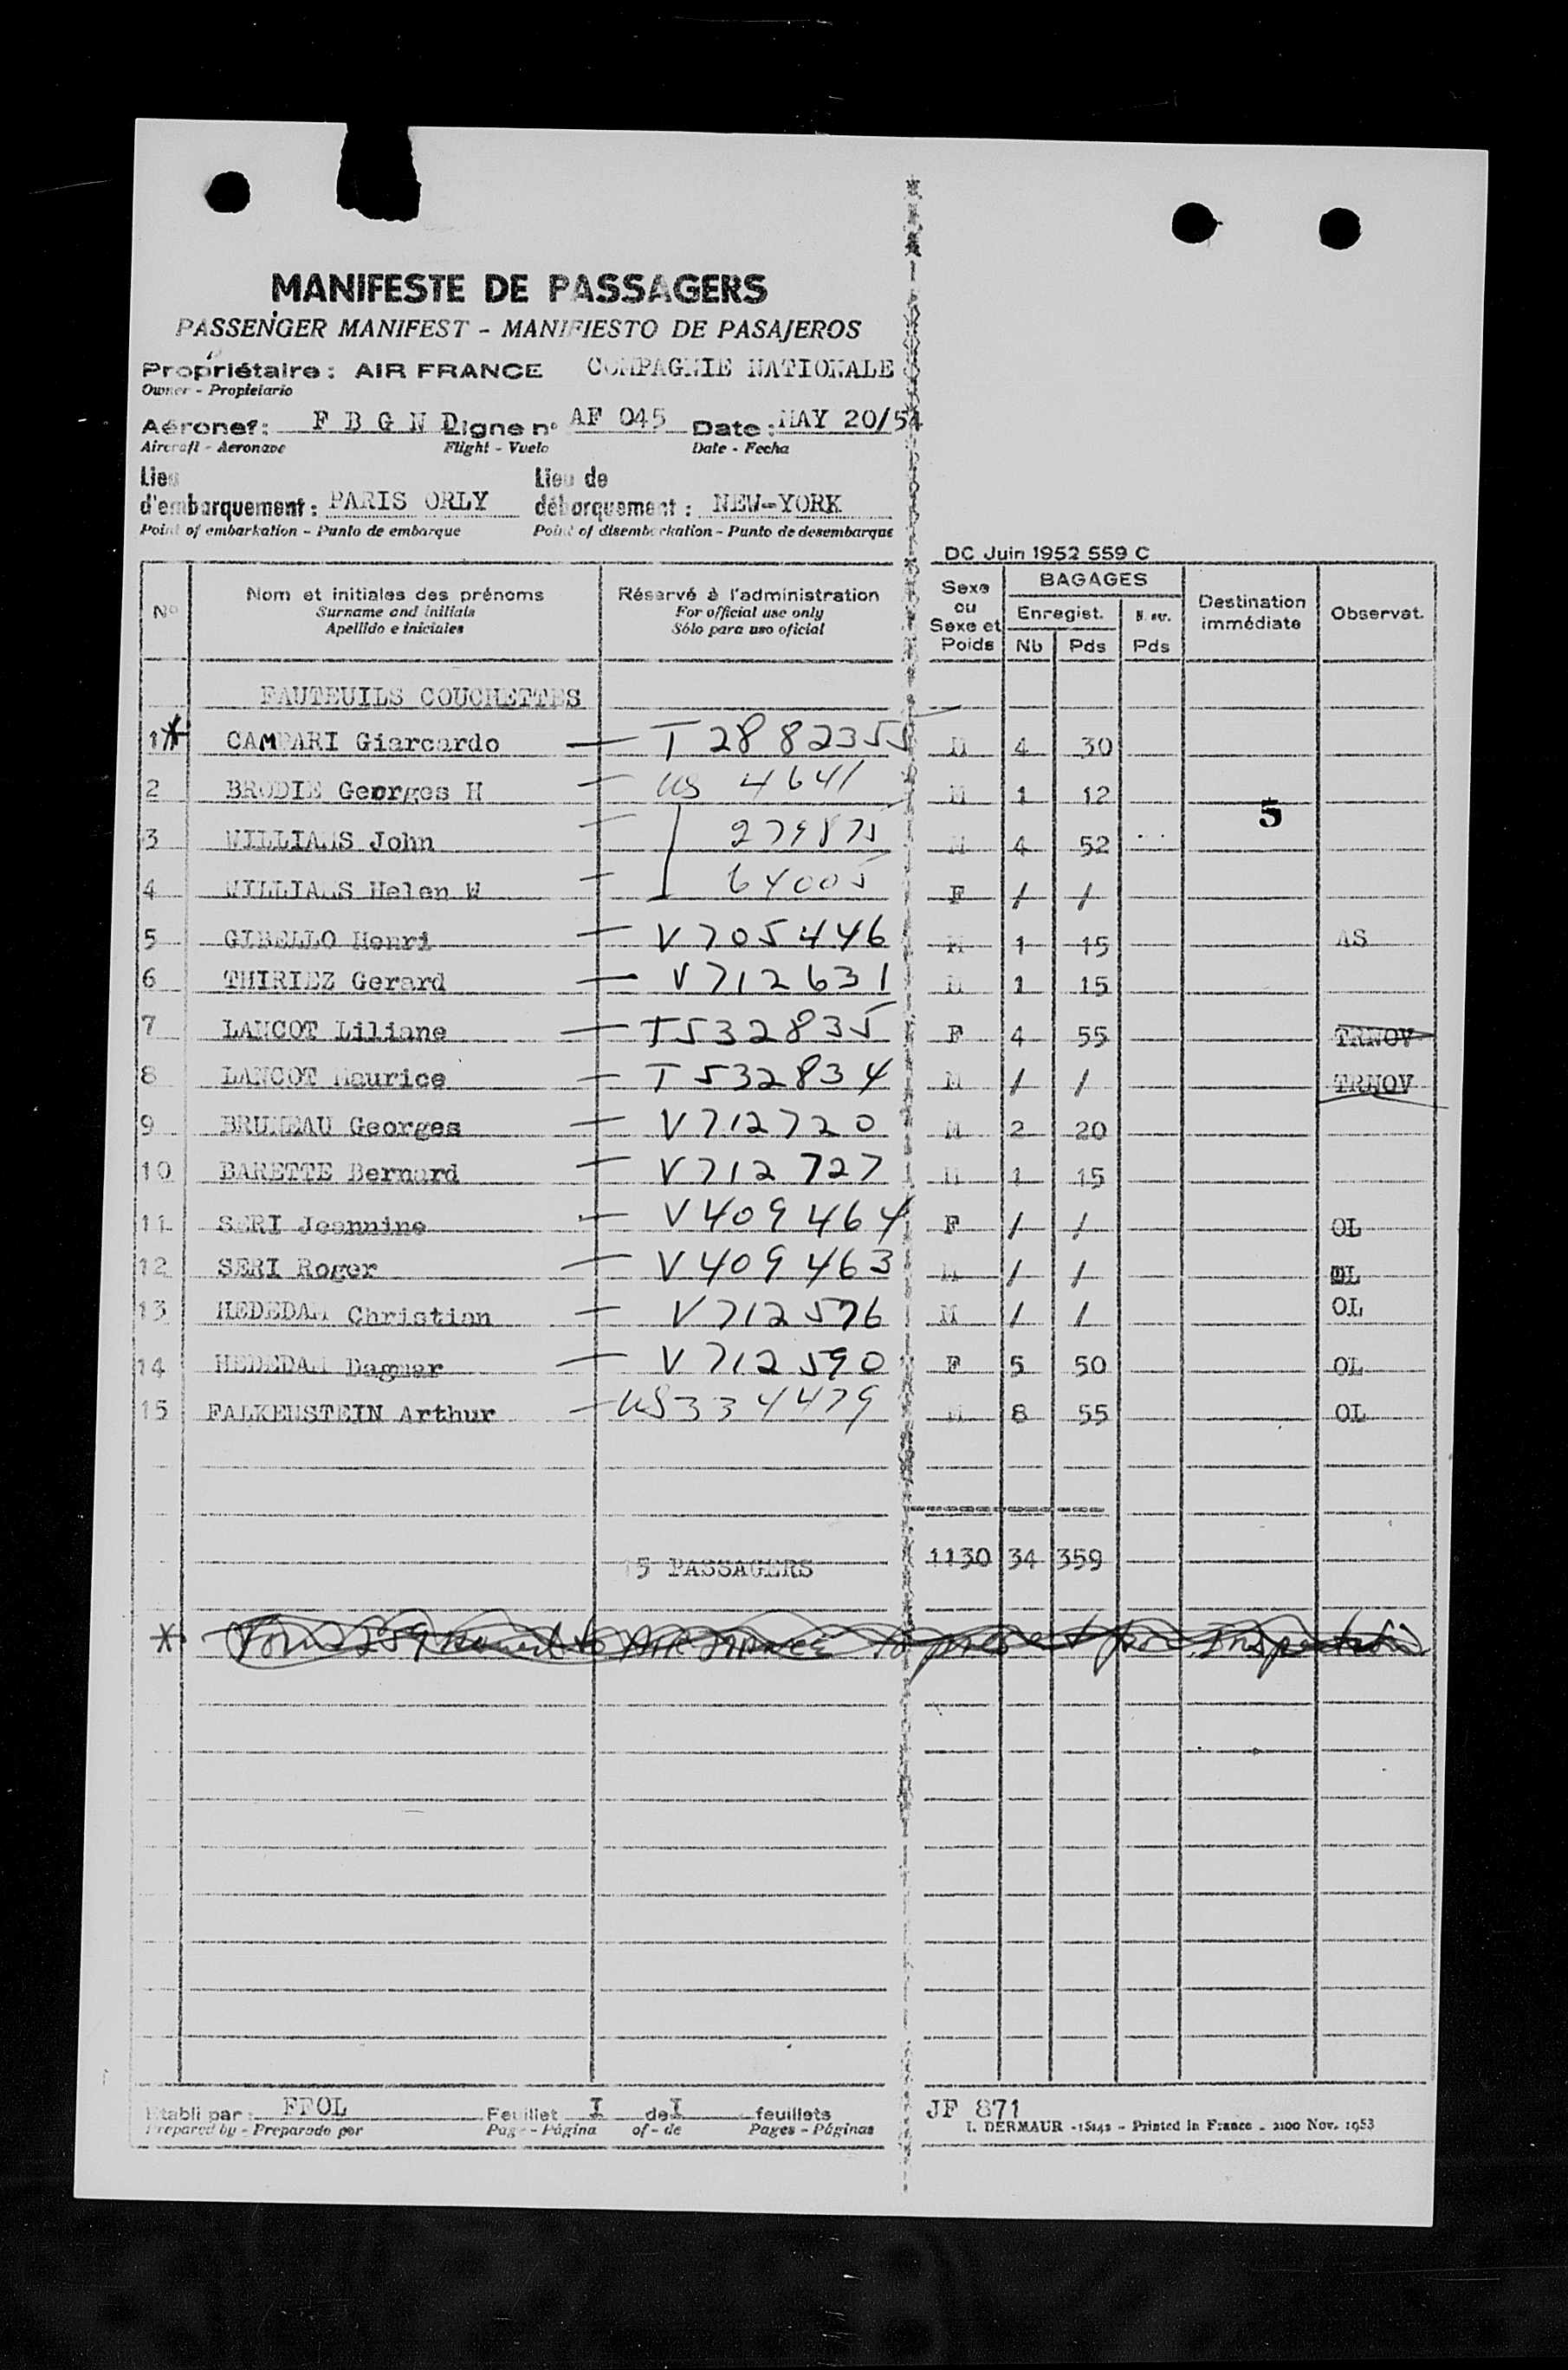 MANIFESTE DE PASSAGERS
PASSENGER MANIFEST - MANIFIESTO DE PASAJEROS
Propriétaire : AIR FRANCE COMPAGNIE NATIONALE
Owner - Propietario
Aéronef : F B G N D Ligne n° AF 045 Date : MAY 20/54
Aircraft - Aeronave Flight - Vuelo Date - Fecha
Lieu d'embarquement : PARIS ORLY Lieu de débarquement : NEW-YORK
Point of embarkation - Punto de embarque Point of disembarkation - Punto de desembarque
DC Juin 1952 559 C
N° Nom et initiales des prénoms Réservé à l'administration Sexe ou Sexe et Poids BAGAGES Destination immédiate Observat.
Surname and initials For official use only Enregist. N. enr.
Apellido e iniciales Sólo para uso oficial Nb Pds Pds
FAUTEUILS COUCHETTES
1 * CAMPARI Giarcardo — T 2882355 M 4 30
2 BRODIE Georges H — US 4641 M 1 12
5
3 WILLIAMS John — 279875 M 4 52
4 WILLIAMS Helen W — 64005 F / /
5 GIBELLO Henri — V705446 M 1 15 AS
6 THIRIEZ Gerard — V712631 M 1 15
7 LANCOT Liliane — T532835 F 4 55 TRNOV
8 LANCOT Maurice — T532834 M / / TRNOV
9 BRUNEAU Georges — V712720 M 2 20
10 BARETTE Bernard — V712727 M 1 15
11 SERI Jeannine — V409464 F / / OL
12 SERI Roger — V409463 M / / OL
13 HEDEDAM Christian — V712576 M / / OL
14 HEDEDAM Dagmar — V712590 F 5 50 OL
15 FALKENSTEIN Arthur — US334479 M 8 55 OL
15 PASSAGERS 1130 34 359
* Form 259 to AIR FRANCE to present for inspection
Etabli par : FFOL Feuillet I de I feuillets JF 871
Prepared by - Preparado por Page - Página of - de Pages - Páginas I. DERMAUR - 15142 - Printed in France - 2100 Nov. 1953